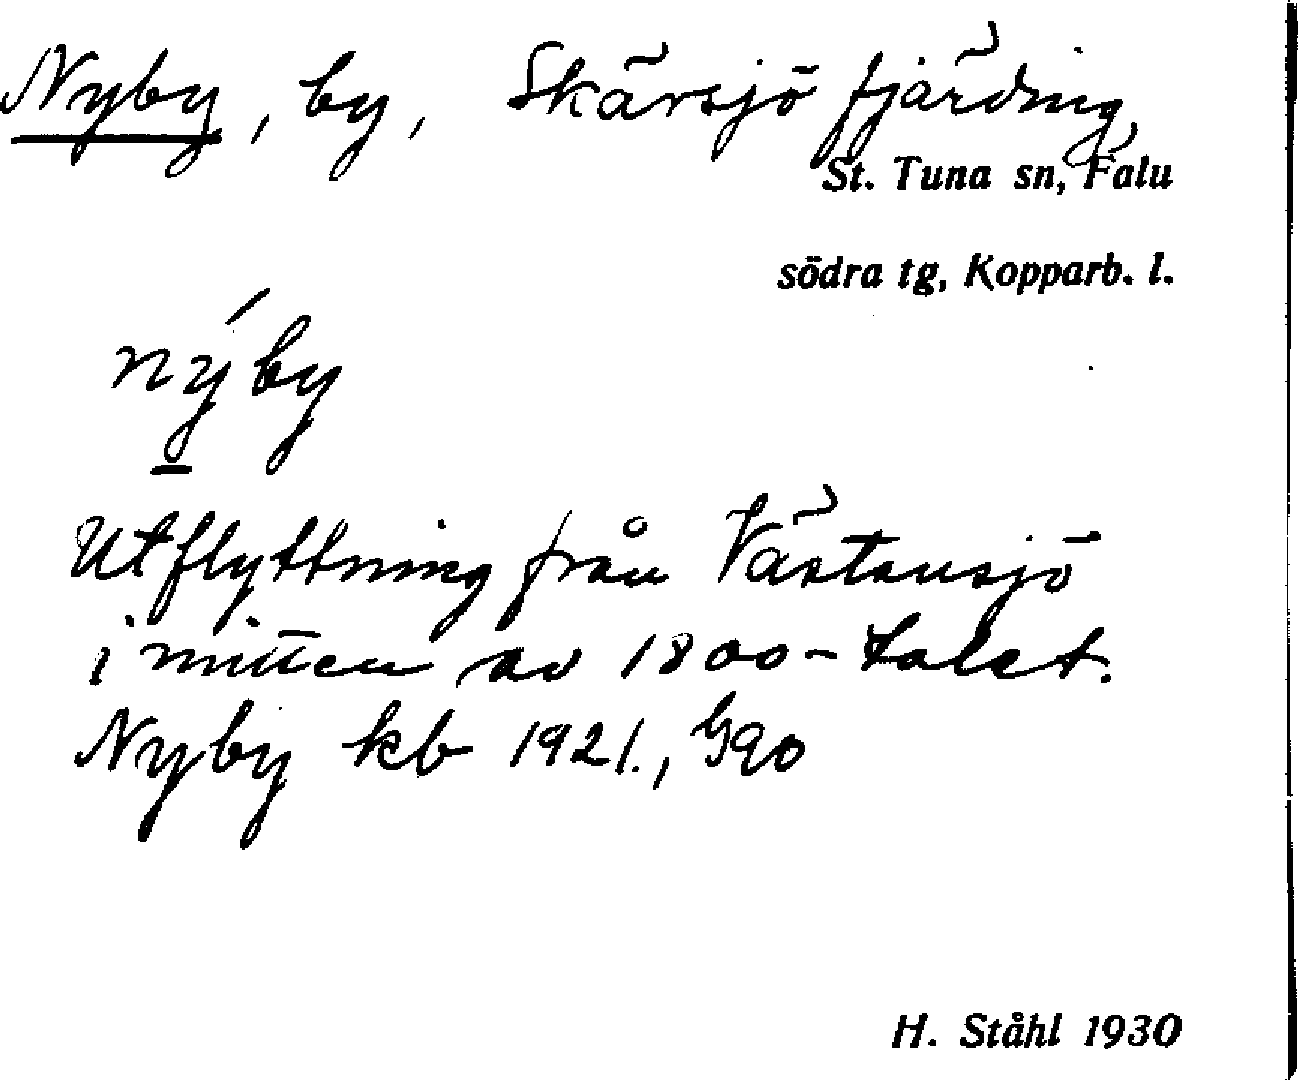 Nyby, by, Skärsjö fjärding,
St. Tuna sn, Falu
södra tg, Kopparb. l.
nýby
Utflyttning från Västansjö
i mitten av 1800-talet.
Nyby kb 1921., G90
H. Ståhl 1930